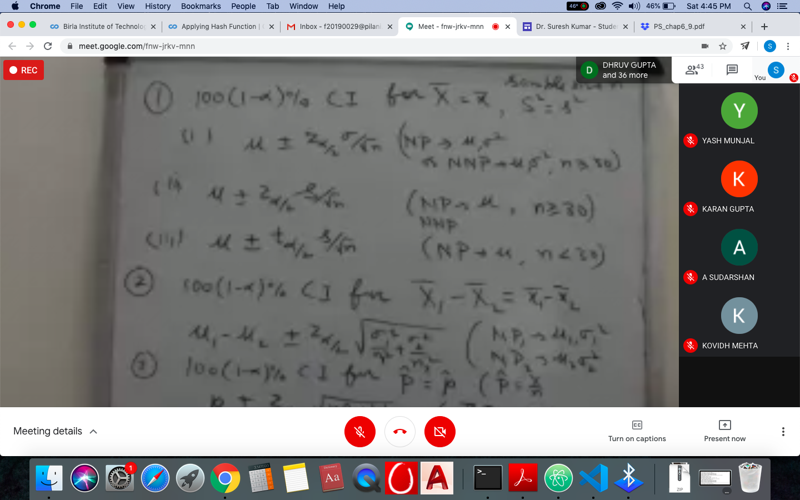 Chrome File Edit View History Bookmarks People Tab Window Help 46° 46% Sat 4:45 PM
Birla Institute of Technolo Applying Hash Function | Inbox - f20190029@pilan Meet - fnw-jrkv-mnn Dr. Suresh Kumar - Stude PS_chap6_9.pdf
meet.google.com/fnw-jrkv-mnn
REC
D DHRUV GUPTA and 36 more
43
S You
① 100(1-α)% CI for X̄ = x̄, S² = s²
(i) μ ± z_{α/2} σ/√n (NP → μ, σ²
or NNP → μ, σ², n ≥ 30)
(ii) μ ± z_{α/2} s/√n (NP → μ, n ≥ 30)
NNP
(iii) μ ± t_{α/2} s/√n (NP → μ, n < 30)
② 100(1-α)% CI for X̄₁ - X̄₂ = x̄₁ - x̄₂
μ₁ - μ₂ ± z_{α/2} √(σ₁²/n₁ + σ₂²/n₂) (NP₁ → μ₁, σ₁²
NP₂ → μ₂, σ₂²
③ 100(1-α)% CI for p̂ = p (p̂ = x/n
Y
YASH MUNJAL
K
KARAN GUPTA
A
A SUDARSHAN
K
KOVIDH MEHTA
Meeting details
Turn on captions
Present now
1
Aa
ZIP